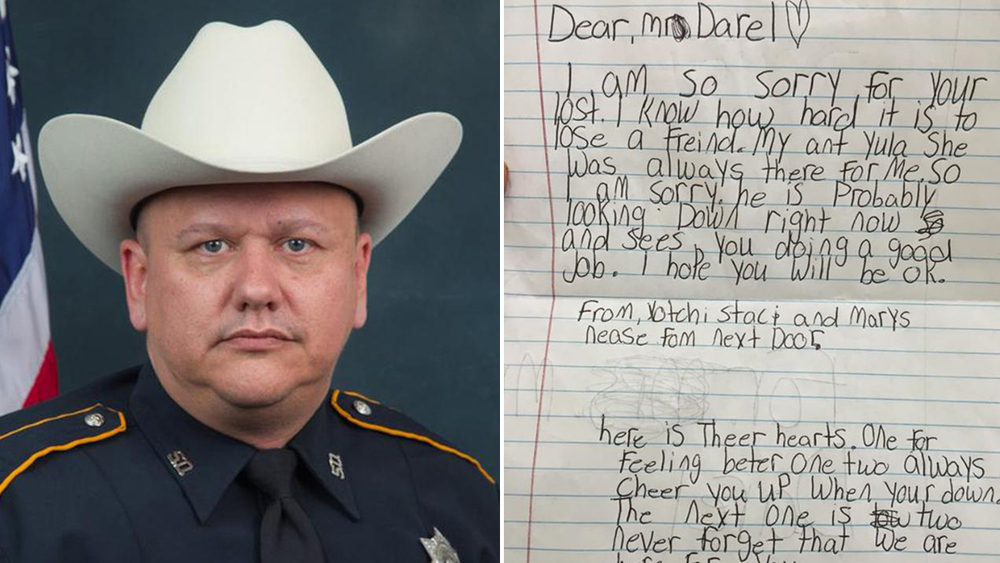 SO
SO
Dear, mr Darel♡
I am so sorry for your
lost. I know how hard it is to
lose a freind. My ant Yula She
was always there for Me. So
I am sorry. he is Probably
looking Down right now
and sees, you doing a good
Job. I hope you will be ok.
From, Xotchi staci and Marys
nease fom next Door.
here is Theer hearts. One for
feeling beter One two always
Cheer you up When your down.
The next one is two
never forget that We are